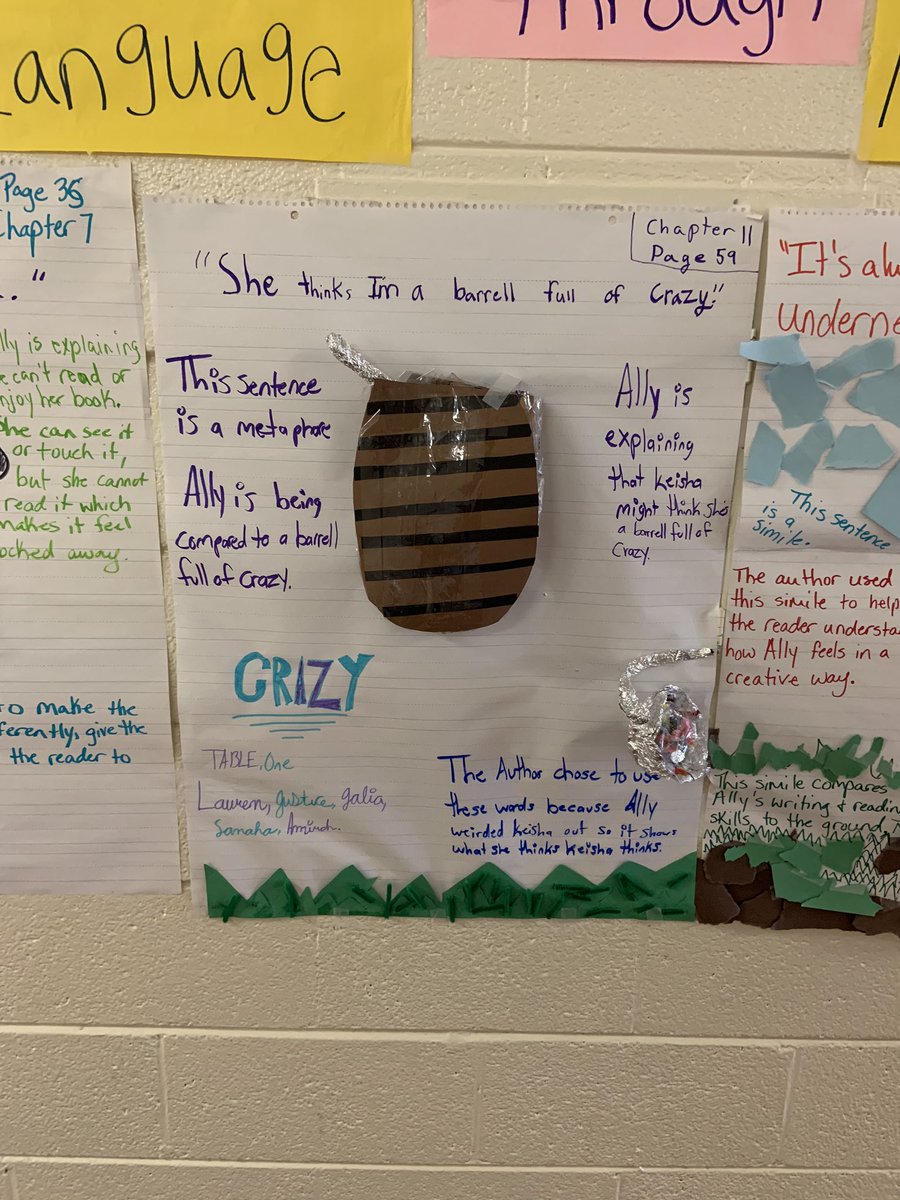 Language
Through
Page 36
Chapter 7
.."
Ally is explaining
can't read or
enjoy her book.
She can see it
or touch it,
but she cannot
read it which
makes it feel
locked away.
to make the
the
the reader to
Chapter 11
Page 59
"She thinks I'm a barrell full of crazy."
This sentence
is a metaphore
Ally is being
compared to a barrell
full of crazy.
Ally is
explaining
that keisha
might think she's
a barrell full of
crazy.
CRAZY
TABLE One
Lauren, Justice, Galia,
Samaha,
The Author chose to use
these words because Ally
weirded Keisha out so it shows
what she thinks Keisha thinks.
"It's
This sentence
is a
simile.
The author used
this simile to help
the reader
how Ally feels in a
creative way.
This simile compares
Ally's writing & reading
skills to the ground